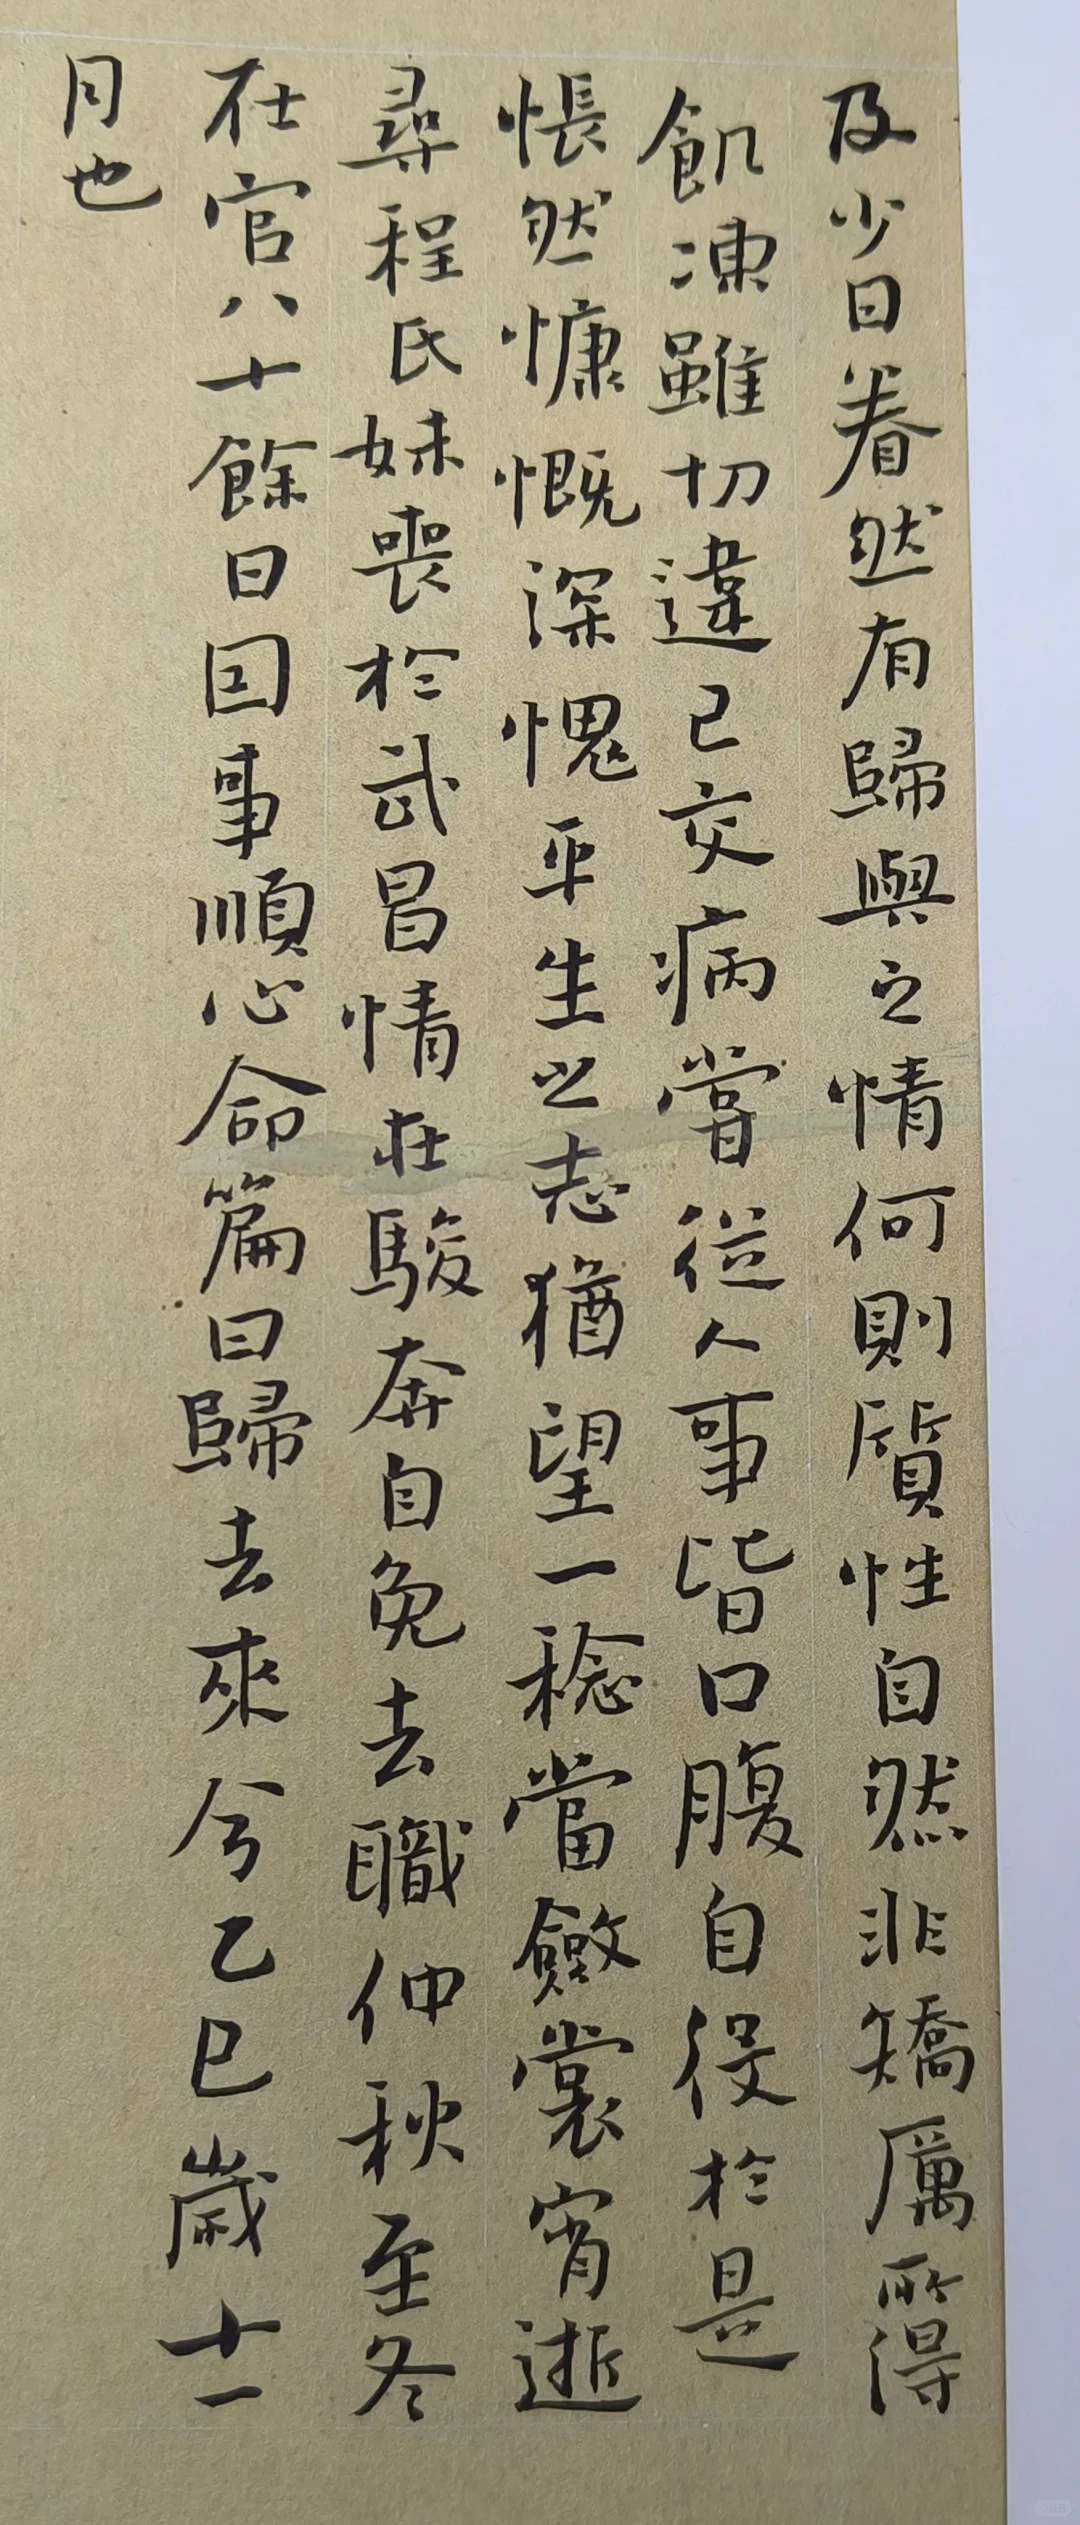 及少日眷然有歸與之情何則質性自然非矯厲所得
飢凍雖切違己交病嘗從人事皆口腹自役於是
悵然慷慨深愧平生之志猶望一稔當斂裳宵逝
尋程氏妹喪於武昌情在駿奔自免去職仲秋至冬
在官八十餘日因事順心命篇曰歸去來兮乙巳歲十一
月也